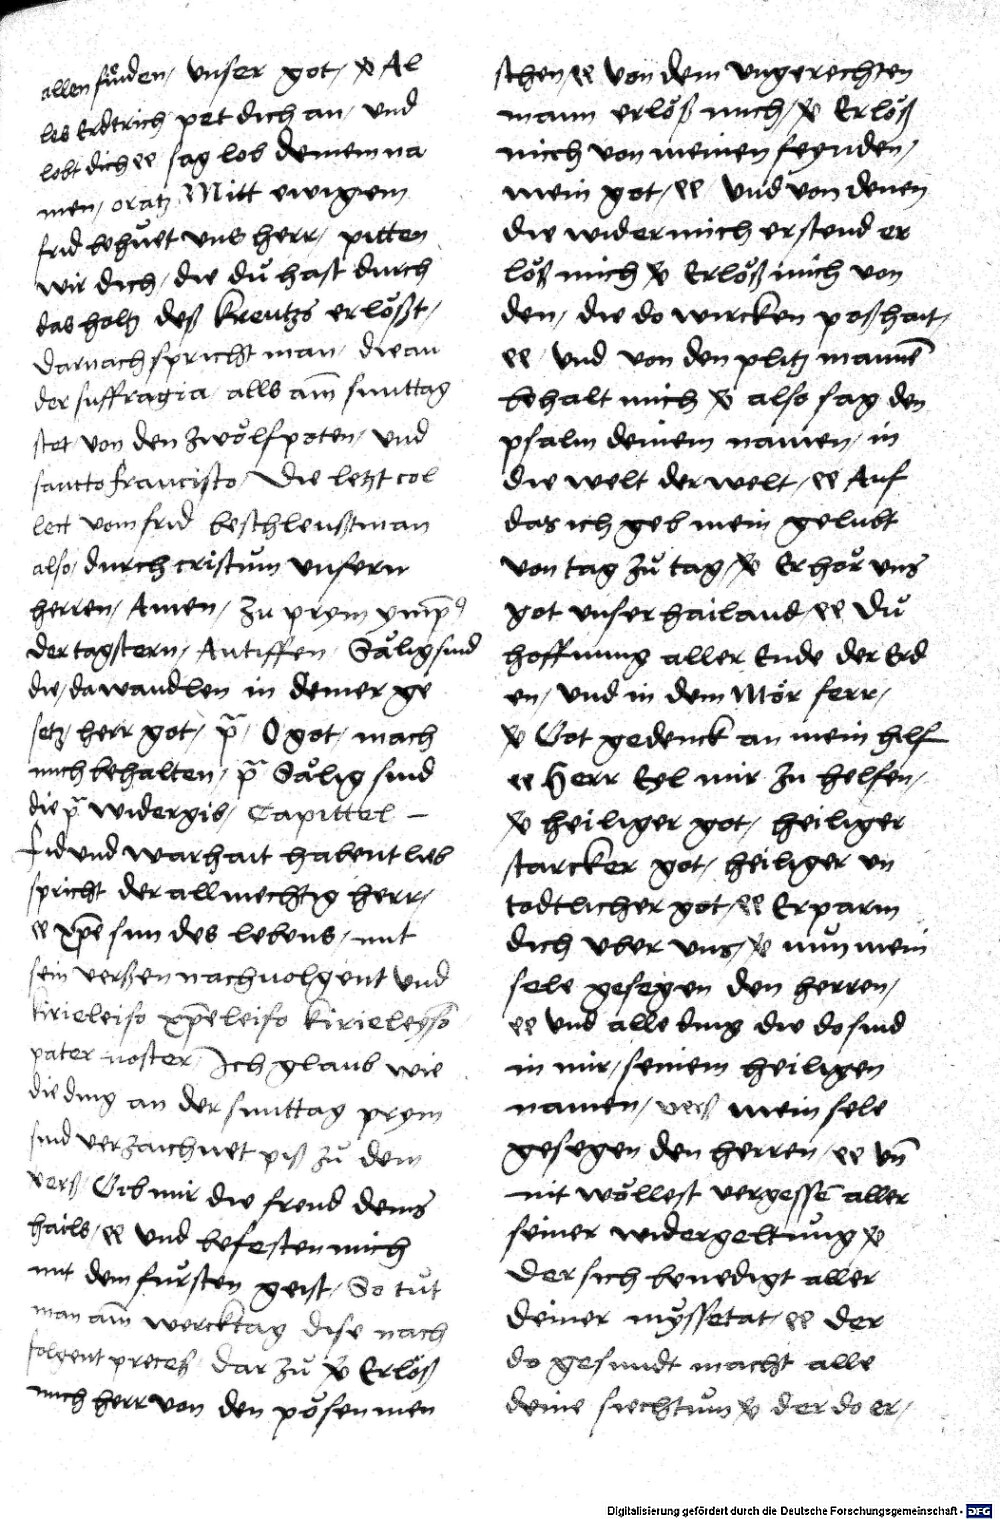 allen sünden / unser got / ℣ Al
les Erdtrich pet dich an / und
lobt dich ℟ sag lob deinem na
men / oratz Mitt ewigem
frid behüet uns herr / pitten
wir dich / die du hast durch
das holtz deß kreutzs erlößt /
Darnach spricht man / die an
der suffragia / alls am̄ sunttag
stet von den zwölfpoten / und
sancto francisto / Die letzt col
lect vom frid beschleußt man
also / durch cristum unsern
herren / Amen / zu prym ymp̄9
Der tagstern / Antiffen Sälig sind
die / da wandlen in deiner ge
setz / herr got / p̄ / O got / mach
mich behalten / p̄ Sälig sind
die p̄ widergib / Capittel –
Frid und warhait habent lieb
spricht der allmechtig herr /
℟ xpē sun des lebens / mit
sein verßen nachuolgent und
kirieleiso xpēleiso kirieleysō
pater noster / Ich glaub wie
die ding an der sunttag prym
sind verzaichnet piß zu dem
verß / Gib mir die freud deins
hails / ℟ und befesten mich
mit dem fürsten geist / So tůt
man am̄ wercktag dise nach
folgent preces dar zu ℣ Erlöß
mich herr von den pösen men
schen ℟ von dem ungerechten
mann erlöß mich / ℣ Erlöß
mich von meinen feynden /
mein got / ℟ und von denen
die wider mich erstend er
löß mich ℣ Erlöß mich von
den / die do wircken poßhait /
℟ / und von den plutz mannē
behalt mich ℣ also sag den
psalm deinem namen / in
die welt der welt / ℟ Auf
das ich geb mein gelubt
von tag zů tag / ℣ Erhör uns
got unser hailand / ℟ Du
hoffnung aller Ende der Erd
en / und in dem Mör ferr /
℣ Got gedenck an mein hilf
℟ Herr Eyl mir zu helfen /
℣ heiliger got / heiliger
starcker got / heiliger un
todtlicher got / ℟ Erparm
dich uber uns / ℣ nun mein
sele gesegen den herren /
℟ und alle ding die do sind
in mir / seinem heiligen
namen / verß mein sele
gesegen den herren / ℟ un̄
nit wöllest vergessē aller
seiner widergeltung ℣
Der sich benedigt aller
deiner myssetat / ℟ der
do gesundt macht alle
deine siechtum ℣ der do er /
Digitalisierung gefördert durch die Deutsche Forschungsgemeinschaft - DFG